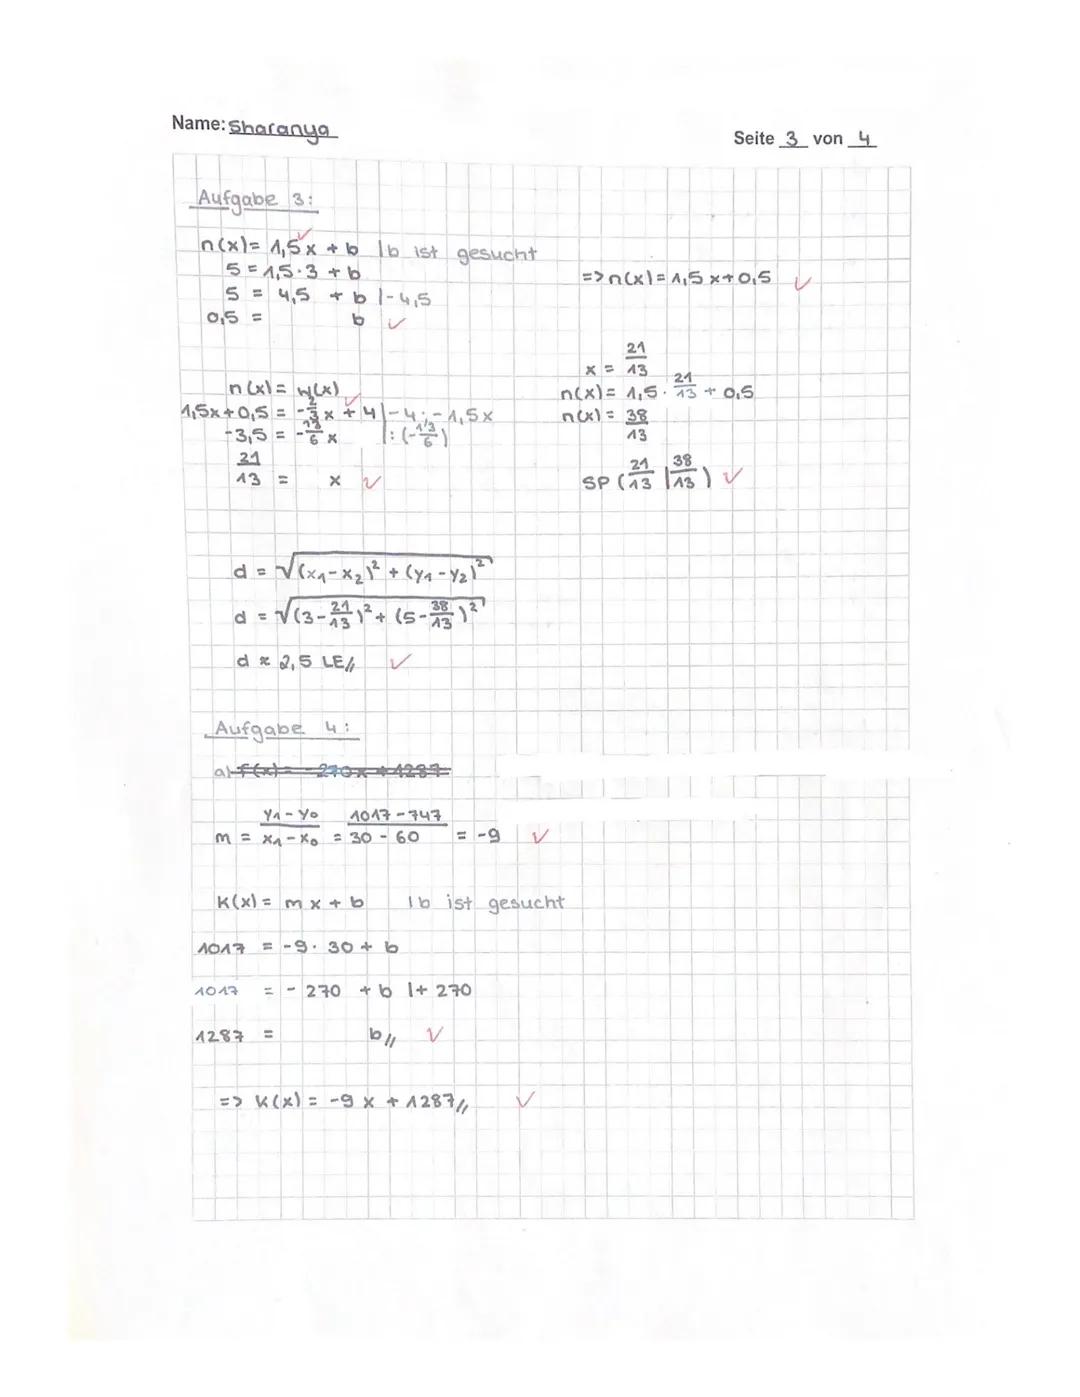 Name: Sharanya
Seite 3 von 4
Aufgabe 3:
n(x)= 1,5x + b | b ist gesucht
5 = 1,5·3 + b
5 = 4,5 + b | -4,5
0,5 = b ✓
=> n(x) = 1,5x+0,5 ✓
n(x) = w(x)
1,5x+0,5 = -2/3x + 4 | -4; -1,5x
-3,5 = -13/6 x | : (-13/6)
21/13 = x ✓
x = 21/13
n(x) = 1,5 · 21/13 + 0,5
n(x) = 38/13
SP (21/13 | 38/13) ✓
d = √(x₁-x₂)² + (y₁-y₂)²
d = √(3-21/13)² + (5-38/13)²
d ≈ 2,5 LE// ✓
Aufgabe 4:
a) f(x) = -270x + 1287
m = y₁-y₀/x₁-x₀ = 1017-747/30-60 = -9 ✓
K(x) = mx + b | b ist gesucht
1017 = -9·30 + b
1017 = -270 + b | + 270
1287 = b// ✓
=> K(x) = -9x + 1287// ✓